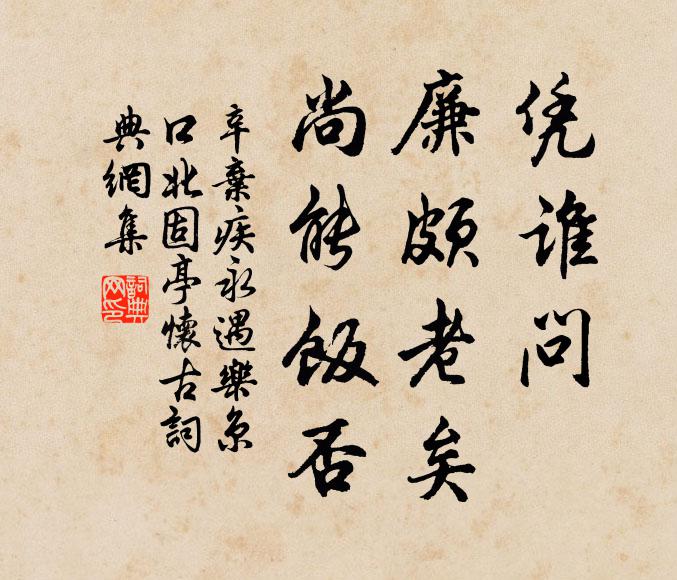 凭誰問
廉頗老矣
尚能飯否
辛棄疾永遇樂京
口北固亭懷古詞
典網集
詞典
网印